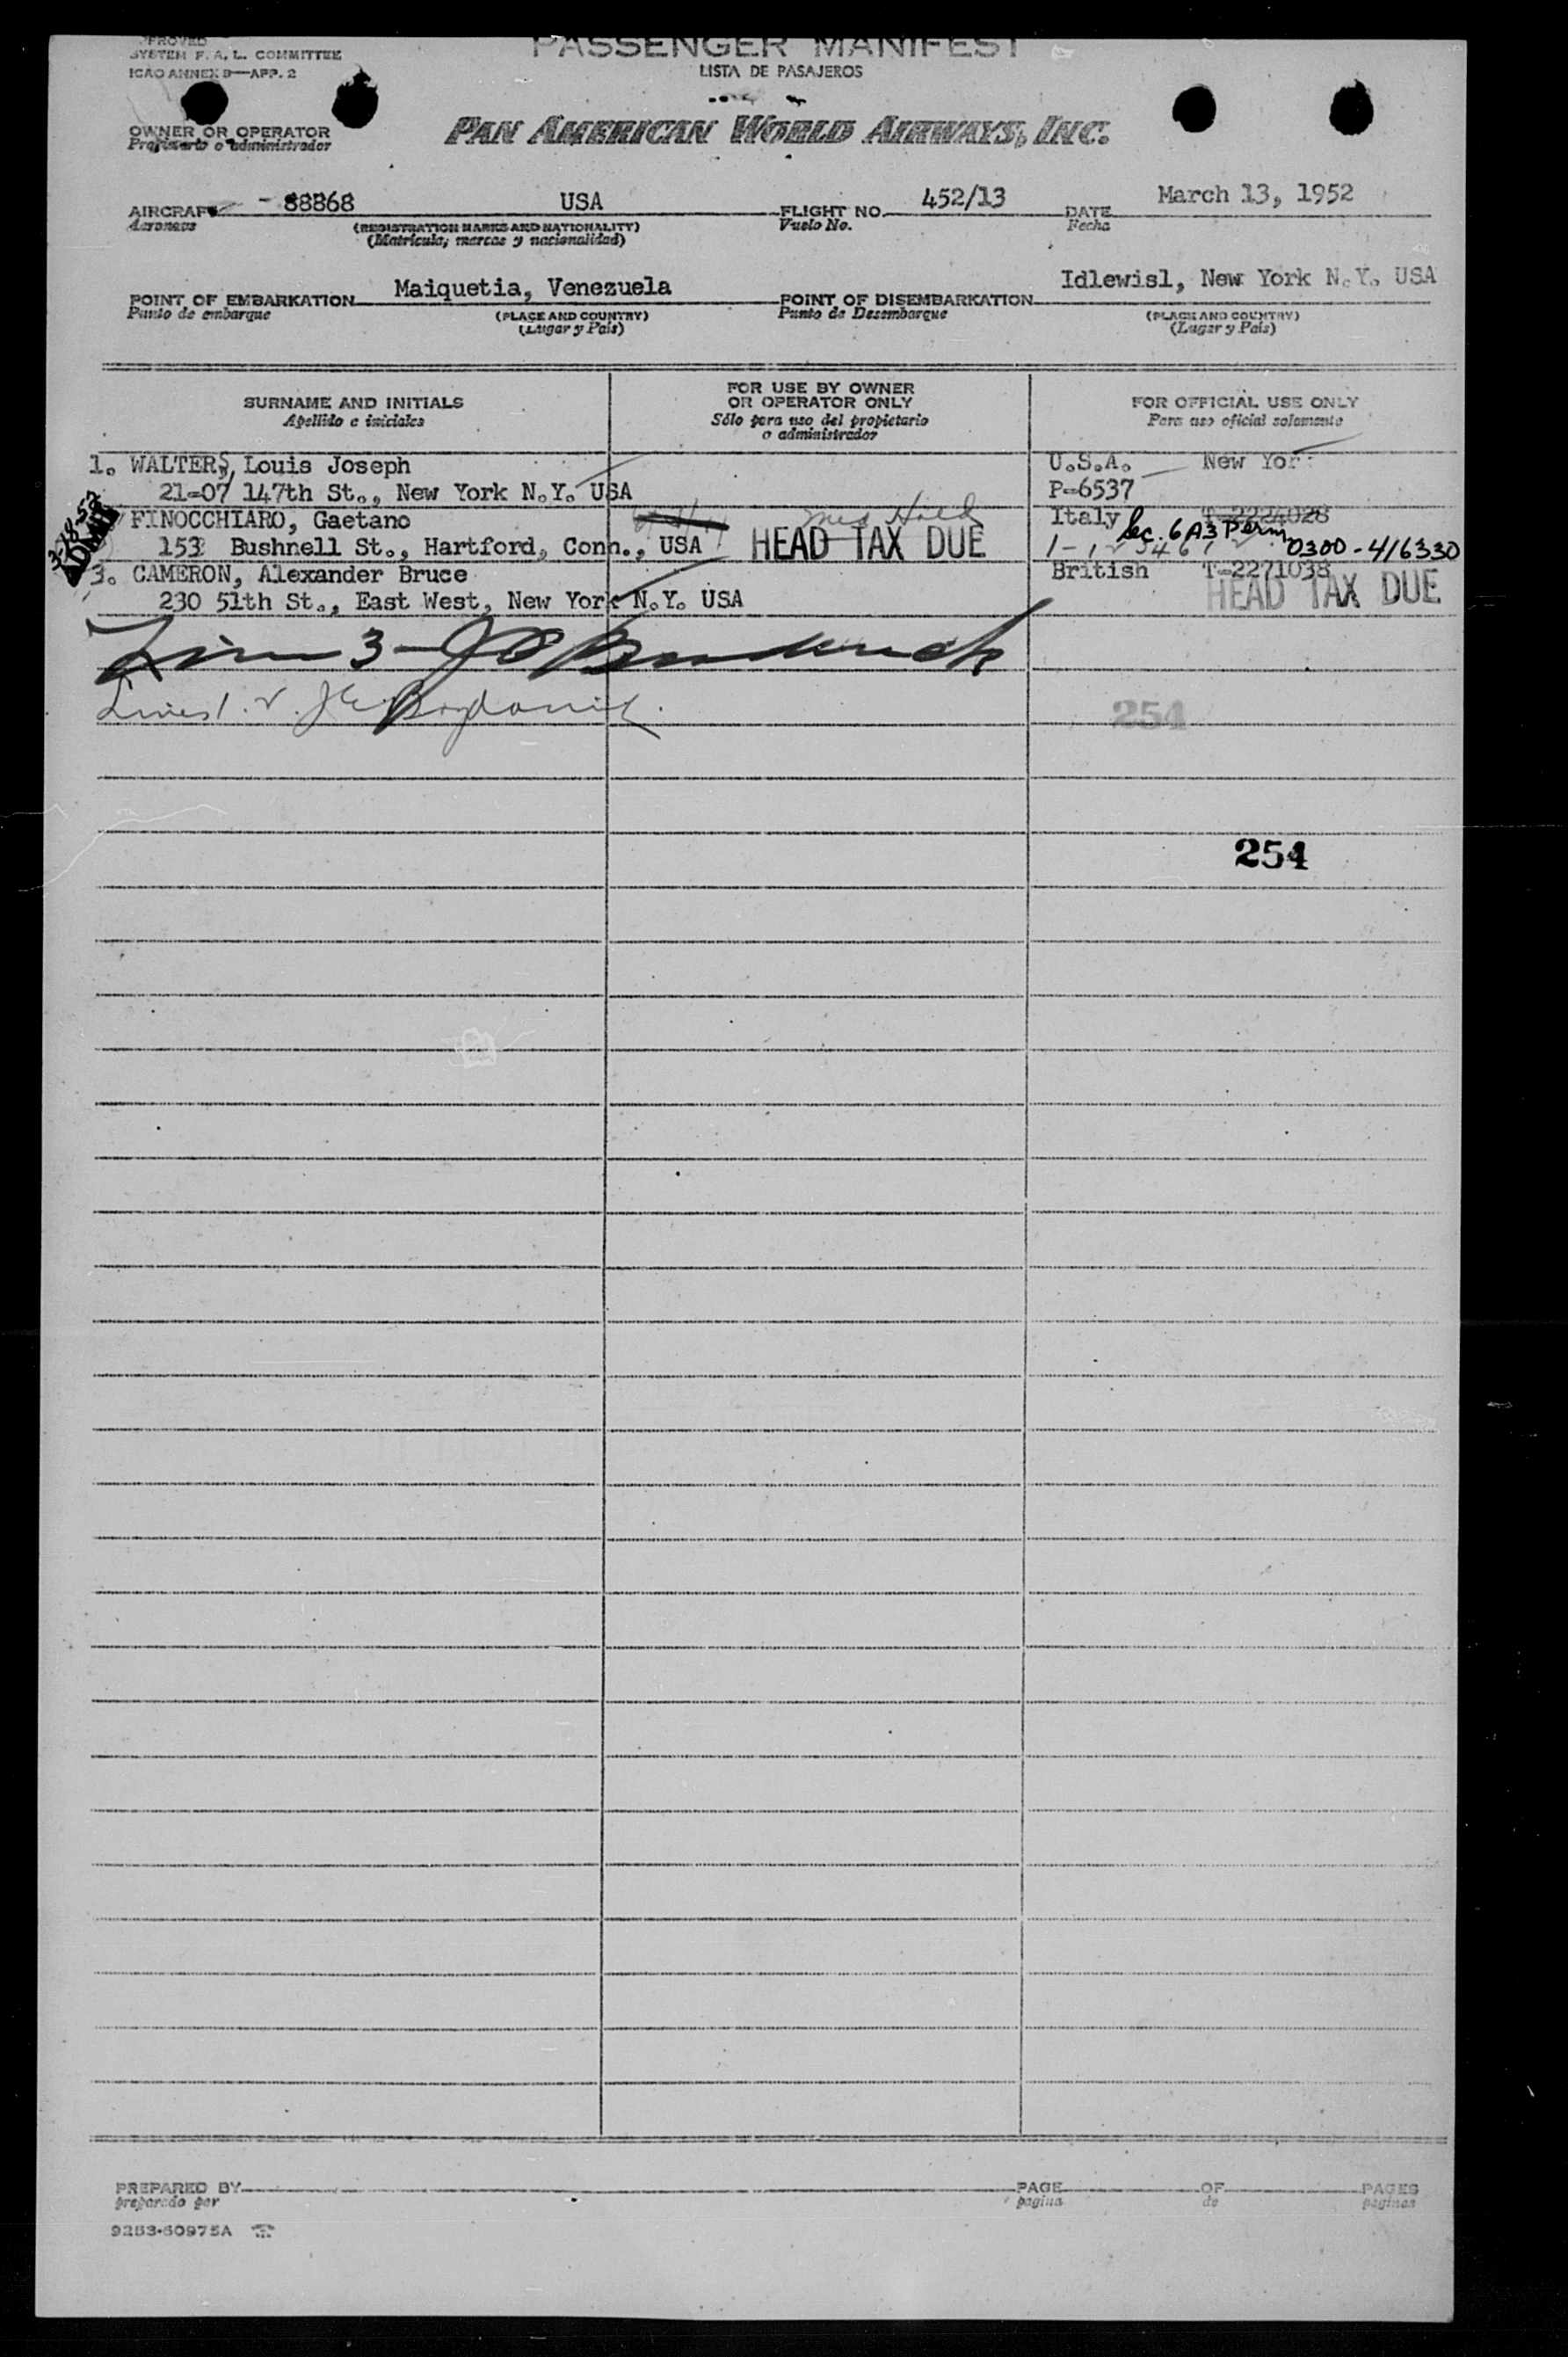 PROVED
SYSTEM F. A. L. COMMITTEE
ICAO ANNEX 9—APP. 2
PASSENGER MANIFEST
LISTA DE PASAJEROS
OWNER OR OPERATOR
Propietario o administrador
PAN AMERICAN WORLD AIRWAYS, INC.
AIRCRAFT - 88868 USA FLIGHT NO. 452/13 DATE March 13, 1952
Aeronave (REGISTRATION MARKS AND NATIONALITY) Vuelo No. Fecha
(Matrícula, marcas y nacionalidad)
POINT OF EMBARKATION Maiquetia, Venezuela POINT OF DISEMBARKATION Idlewisl, New York N.Y. USA
Punto de embarque (PLACE AND COUNTRY) Punto de Desembarque (PLACE AND COUNTRY)
(Lugar y País) (Lugar y País)
SURNAME AND INITIALS
Apellido e iniciales
FOR USE BY OWNER
OR OPERATOR ONLY
Sólo para uso del propietario
o administrador
FOR OFFICIAL USE ONLY
Para uso oficial solamente
1. WALTERS, Louis Joseph U.S.A. New Yor
21-07 147th St., New York N.Y. USA P-6537
FINOCCHIARO, Gaetano Italy T-2224028
3-18-52
ADMIT
153 Bushnell St., Hartford, Conn., USA HEAD TAX DUE Sec. 6A3 Perm 0300-416330
3. CAMERON, Alexander Bruce British T-2271038
230 51th St., East West, New York N.Y. USA HEAD TAX DUE
Line 3 -
Lines 1.
254
254
PREPARED BY PAGE OF PAGES
preparado por pagina de paginas
9283-60975A